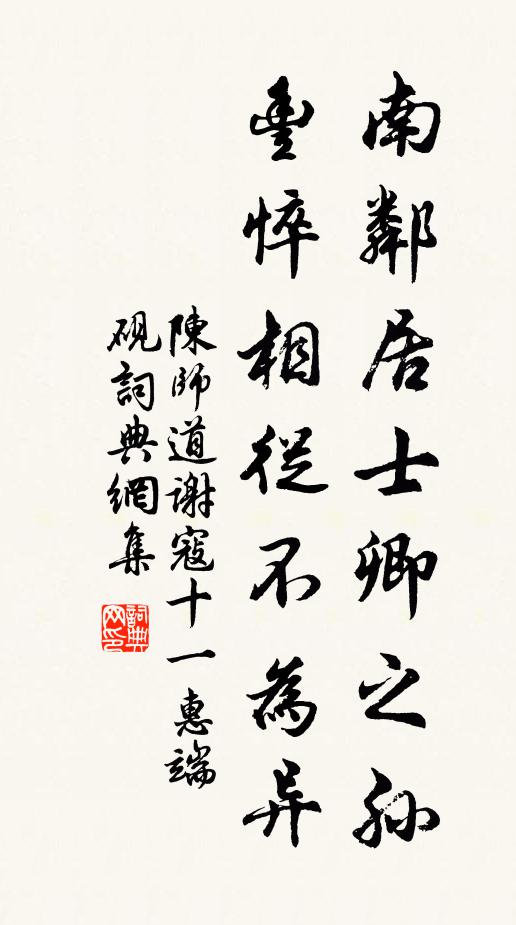 南鄰居士卿之孙
豊悴相從不為异
陳師道謝寇十一惠端
硯詞典網集
詞典网印